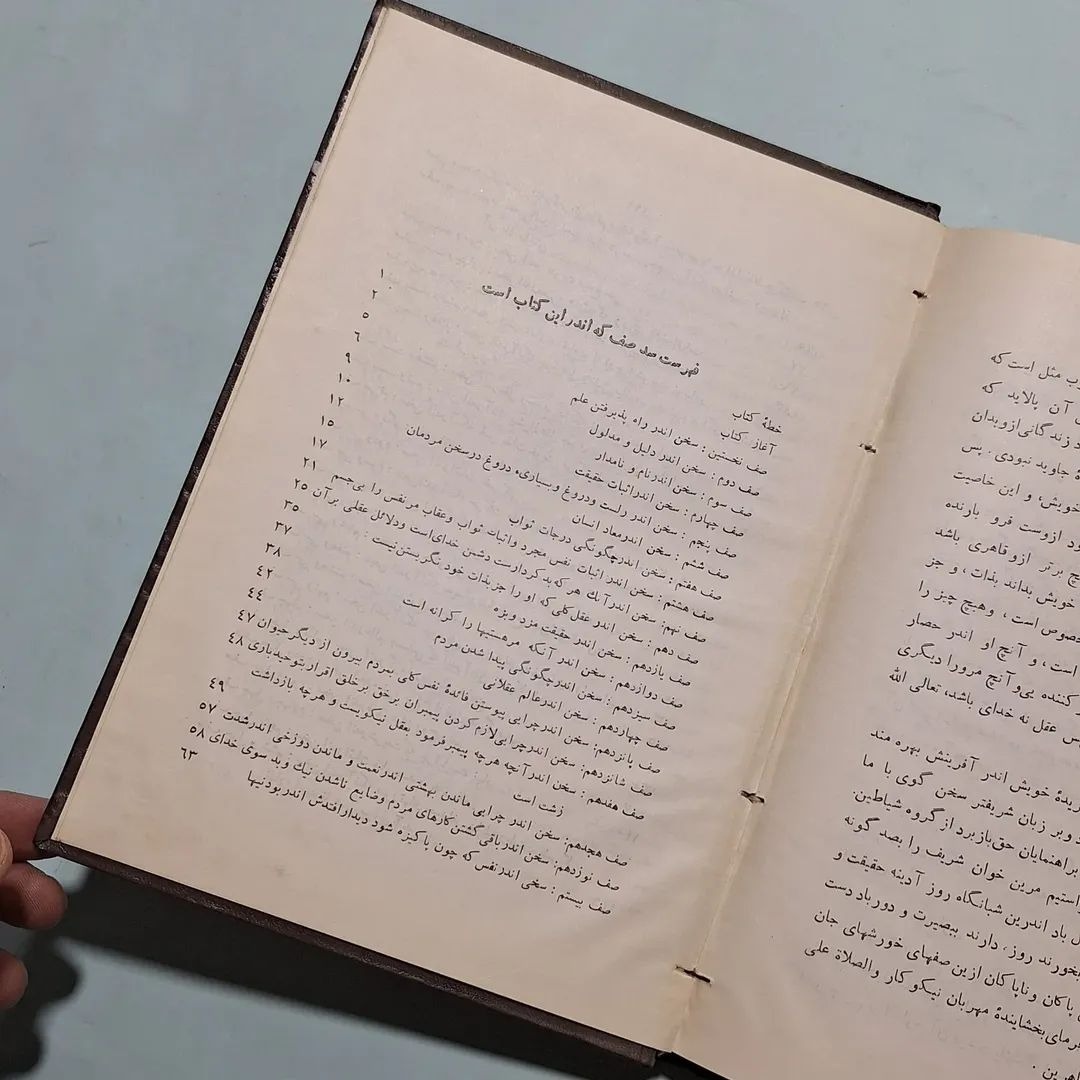 فهرست صد صف که اندر این کتاب است
خطبهٔ کتاب ۱
آغاز کتاب ۲
صف نخستین : سخن اندر راه پذیرفتن علم ۵
صف دوم : سخن اندر دلیل و مدلول ۶
صف سوم : سخن اندرنام و نامدار ۹
صف چهارم : سخن اندراثبات حقیقت ۱۰
صف پنجم : سخن اندر راست ودروغ وبسیاری، دروغ درسخن مردمان ۱۲
صف ششم : سخن اندرمعاد انسان ۱۵
صف هفتم : سخن اندرچگونگی درجات ثواب ۱۷
صف هشتم : سخن اندر اثبات نفس مجرد واثبات ثواب وعقاب مرنفس را بی‌جسم ۲۱
صف نهم: سخن اندرآنك هر که بد کردارست دشمن خدای‌است ودلائل عقلی برآن ۲۵
صف دهم : سخن اندر عقل کلی که او را جز بذات خود نگرستن نیست ۳۵
صف یازدهم : سخن اندر حقیقت مزد ویژه ۳۷
صف دوازدهم : سخن اندر آنکه مرهستیها را کرانه است ۳۸
صف سیزدهم : سخن اندرچگونگی پیدا شدن مردم ۴۲
صف چهاردهم : سخن اندرعالم عقلانی ۴۴
صف پانزدهم: سخن اندرچرایی پیوستن فائدهٔ نفس کلی بمردم بیرون از دیگرحیوان ۴۷
صف شانزدهم: سخن اندرچرایی‌لازم کردن پیمبران برخق برخلق اقرار بتوحیدباری ۴۸
صف هفدهم: سخن اندرآنچه هرچه پیمبرفرمود بعقل نیکویست و هرچه بازداشت ۴۹
زشت است
صف هجدهم: سخن اندر چرایی ماندن بهشتی اندرنعمت و ماندن دوزخی اندرشدت ۵۷
صف نوزدهم: سخن اندرباقی گشتن کارهای مردم وضایع ناشدن نیك و بد سوی خدای ۵۸
صف بیستم : سخی اندرنفس که چون پاکیزه شود دیدارافتدش اندر بودنیها ۶۳
مثل است که
آن پالاید که
زندگانی‌ازوبدان
جاوید نبودی . پس
خویش، و این خاصیت
ازوست فرو بارنده
برتر ازوقاهری باشد
خویش بداند بذات، و جز
است ، وهیچ چیز را
است ، و آنچ‌او اندر حصار
کننده بی‌و آنچ مرورا دیگری
عقل نه خدای باشد، تعالی الله
خویش اندر آفرینش بهره مند
وبر زبان شریفتر سخن گوی با ما
براهنمایان حق‌بازبرد از گروه شیاطین.
مرین خوان شریف را بصد گونه
باد اندرین شبانگاه روز آدینه حقیقت و
بخورند روز ، دارند ببصیرت و دورباد دست
پاکان وناپاکان ازین صفهای خورشهای جان
بخشایندهٔ مهربان نیکو کار والصلاة علی